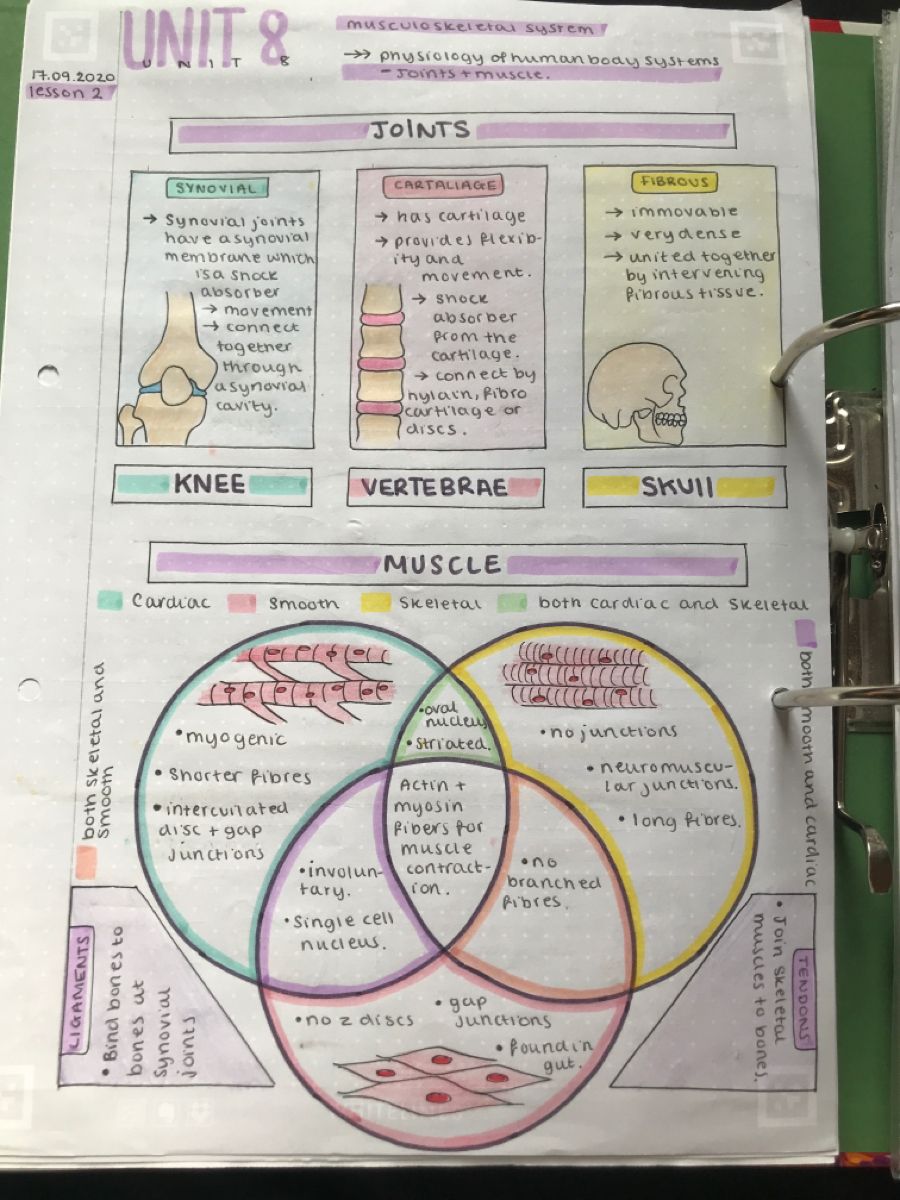 UNIT 8
U N I T 8
musculoskeletal system
→→ physiology of human body systems
- Joints + muscle.
17.09.2020
lesson 2
JOINTS
SYNOVIAL
→ Synovial joints
have a synovial
membrane which
is a shock
absorber
→ movement
→ connect
together
through
a synovial
cavity.
KNEE
CARTALIAGE
→ has cartilage
→ provides flexib-
ity and
movement.
→ shock
absorber
from the
cartilage.
→ connect by
hylain, fibro
cartilage or
discs.
VERTEBRAE
FIBROUS
→ immovable
→ very dense
→ united together
by intervening
fibrous tissue.
SKUll
MUSCLE
Cardiac
Smooth
Skeletal
both cardiac and skeletal
both smooth and cardiac
both skeletal and
smooth
• myogenic
• Shorter fibres
• interculated
disc + gap
junctions
• oval
nucleus
• Striated.
• no junctions
• neuromuscu-
lar junctions.
• long fibres.
Actin +
myosin
fibers for
muscle
contract-
ion.
• involun-
tary.
• Single cell
nucleus.
• no
branched
fibres.
• no z discs
• gap
junctions
• found in
gut.
LIGAMENTS
• Bind bones to
bones at
synovial
joints
TENDONS
• Join skeletal
muscles to bones.